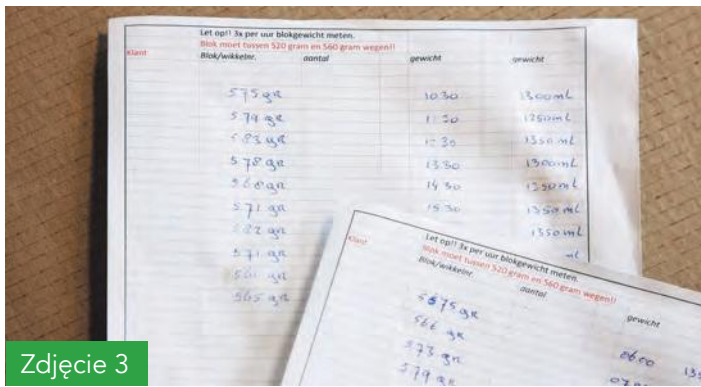 Let op!! 3x per uur blokgewicht meten.
Blok moet tussen 520 gram en 560 gram wegen!!
Klant Blok/wikkelnr. aantal gewicht gewicht
575 gr 10:30 1300 mL
579 gr 11:30 1250 mL
583 gr 12:30 1350 mL
578 gr 13:30 1300 mL
568 gr 14:30 1350 mL
571 gr 15:30 1350 mL
582 gr 1350 mL
571 gr mL
561 gr
565 gr
Let op!! 3x per uur blokgewicht meten.
Blok moet tussen 520 gram en 560 gram wegen!!
Klant Blok/wikkelnr. aantal gewicht
5675 gr
566 gr 06:00
573 gr
579 gr
Zdjęcie 3